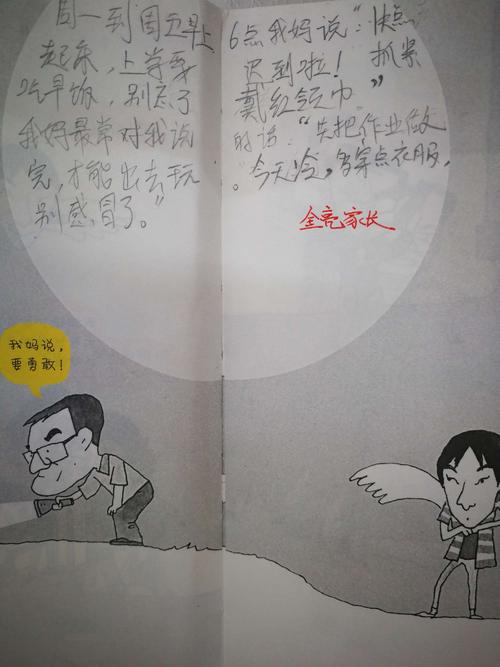 周一到周五早上6点我妈说：“快点
起床，上学要迟到啦！抓紧
吃早饭，别忘了戴红领巾”
我妈最常对我说的话：“先把作业做
完，才能出去玩。今天冷，多穿点衣服，
别感冒了。”
金亮家长
我妈说，
要勇敢！